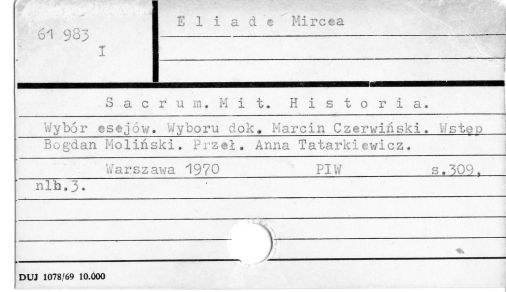 E l i a d e Mircea
61 983
I
S a c r u m. M i t. H i s t o r i a.
Wybór esejów. Wyboru dok. Marcin Czerwiński. Wstęp
Bogdan Moliński. Przeł. Anna Tatarkiewicz.
Warszawa 1970 PIW s.309,
nlb.3.
DUJ 1078/69 10.000